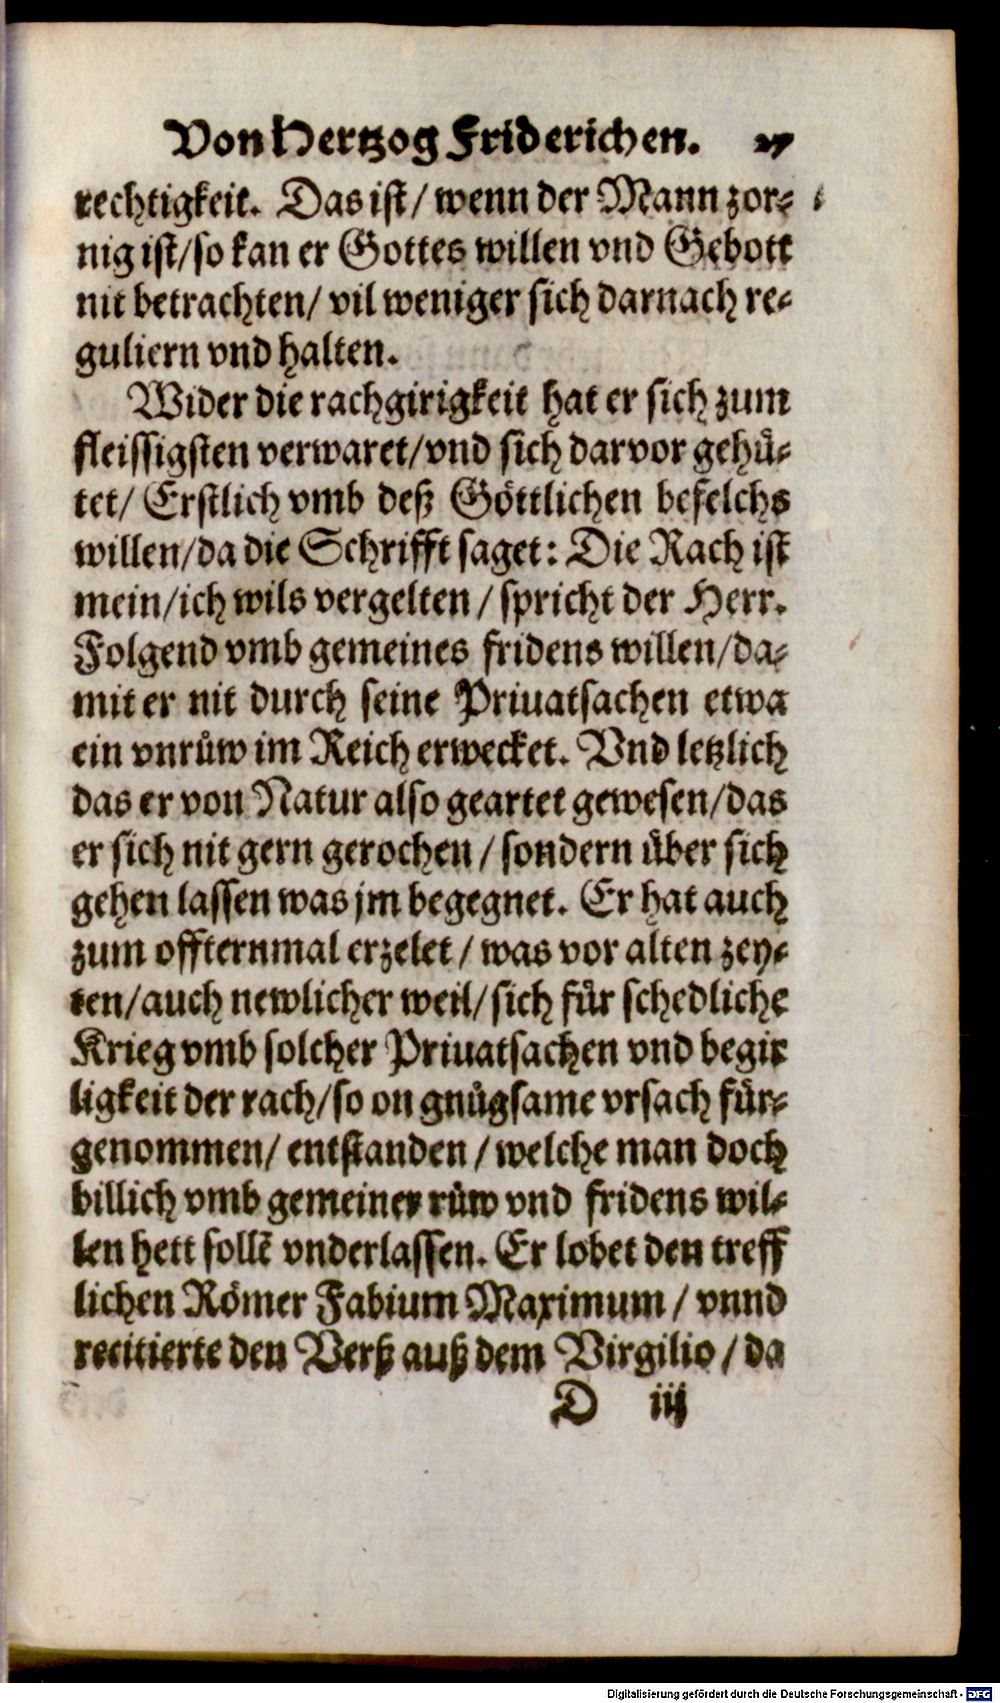 Von Hertzog Friderichen. 27
rechtigkeit. Das ist/ wenn der Mann zor⸗
nig ist/so kan er Gottes willen vnd Gebott
nit betrachten/ vil weniger sich darnach re⸗
guliern vnd halten.
Wider die rachgirigkeit hat er sich zum
fleissigsten verwaret/vnd sich darvor gehuͤ⸗
tet/ Erstlich vmb deß Goͤttlichen befelchs
willen/da die Schrifft saget: Die Rach ist
mein/ich wils vergelten / spricht der Herr.
Folgend vmb gemeines fridens willen/da⸗
mit er nit durch seine Priuatsachen etwa
ein vnruͤw im Reich erwecket. Vnd letzlich
das er von Natur also geartet gewesen/das
er sich nit gern gerochen / sondern uͤber sich
gehen lassen was jm begegnet. Er hat auch
zum offternmal erzelet / was vor alten zey⸗
ten/auch newlicher weil/ sich fuͤr schedliche
Krieg vmb solcher Priuatsachen vnd begir
ligkeit der rach/so on gnuͤgsame vrsach fuͤr⸗
genommen/ entstanden / welche man doch
billich vmb gemeiner ruͤw vnd fridens wil⸗
len hett sollẽ vnderlassen. Er lobet den treff
lichen Roͤmer Fabium Maximum / vnnd
recitierte den Verß auß dem Virgilio / da
D iij
Digitalisierung gefördert durch die Deutsche Forschungsgemeinschaft - DFG